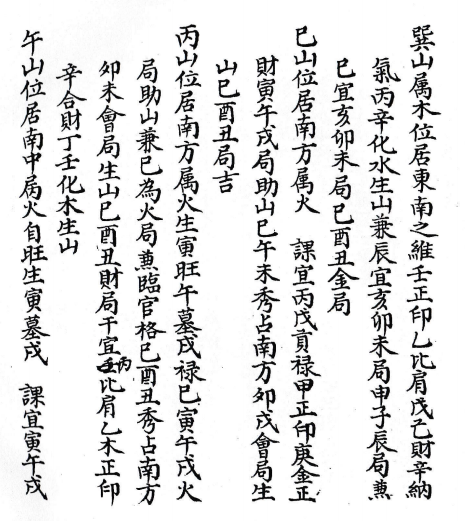 巽山属木位居東南之維壬正印乙比肩戊己財辛納
氣丙辛化水生山兼辰宜亥卯未局申子辰局兼
巳宜亥卯未局巳酉丑金局
巳山位居南方属火　課宜丙戊貢禄甲正印庚金正
財寅午戌局助山巳午未秀占南方卯戌會局生
山巳酉丑局吉
丙山位居南方属火生寅旺午墓戌禄巳寅午戌火
局助山兼巳為火局兼臨官格巳酉丑秀占南方
卯未會局生山巳酉丑財局干宜丙比肩乙木正印
辛合財丁壬化木生山
午山位居南中屬火自旺生寅墓戌　課宜寅午戌